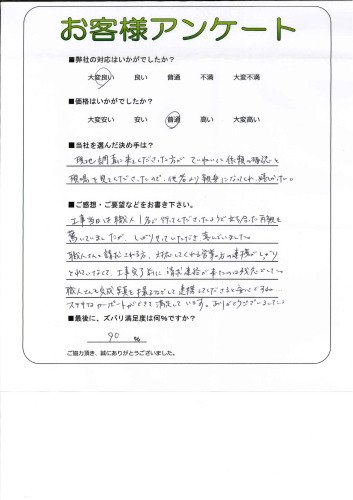 お客様アンケート
■弊社の対応はいかがでしたか?
大変良い 良い 普通 不満 大変不満
■価格はいかがでしたか?
大変安い 安い 普通 高い 大変高い
■当社を選んだ決め手は?
現地調査に来てくださった方が ていねいに依頼の確認と
現場を見てくださったので、他者より親身になってくれ
■ご感想・ご要望などをお書き下さい。
工事当日は職人1名で行ってくださったようで
驚いていましたが、しっかりやっていただき喜んでいました。
職人さんの 方、対応してくれる営業の方の連携がしっかり
とれていなくて、工事完了前に 連絡が来たのは残念でした。
職人さんも完成写真を撮るなどして連携してくださると安心ですね...
ステキなカーポートができて満足しています。ありがとうございました。
■最後に、ズバリ満足度は何%ですか?
90 %
ご協力頂き、誠にありがとうございました。